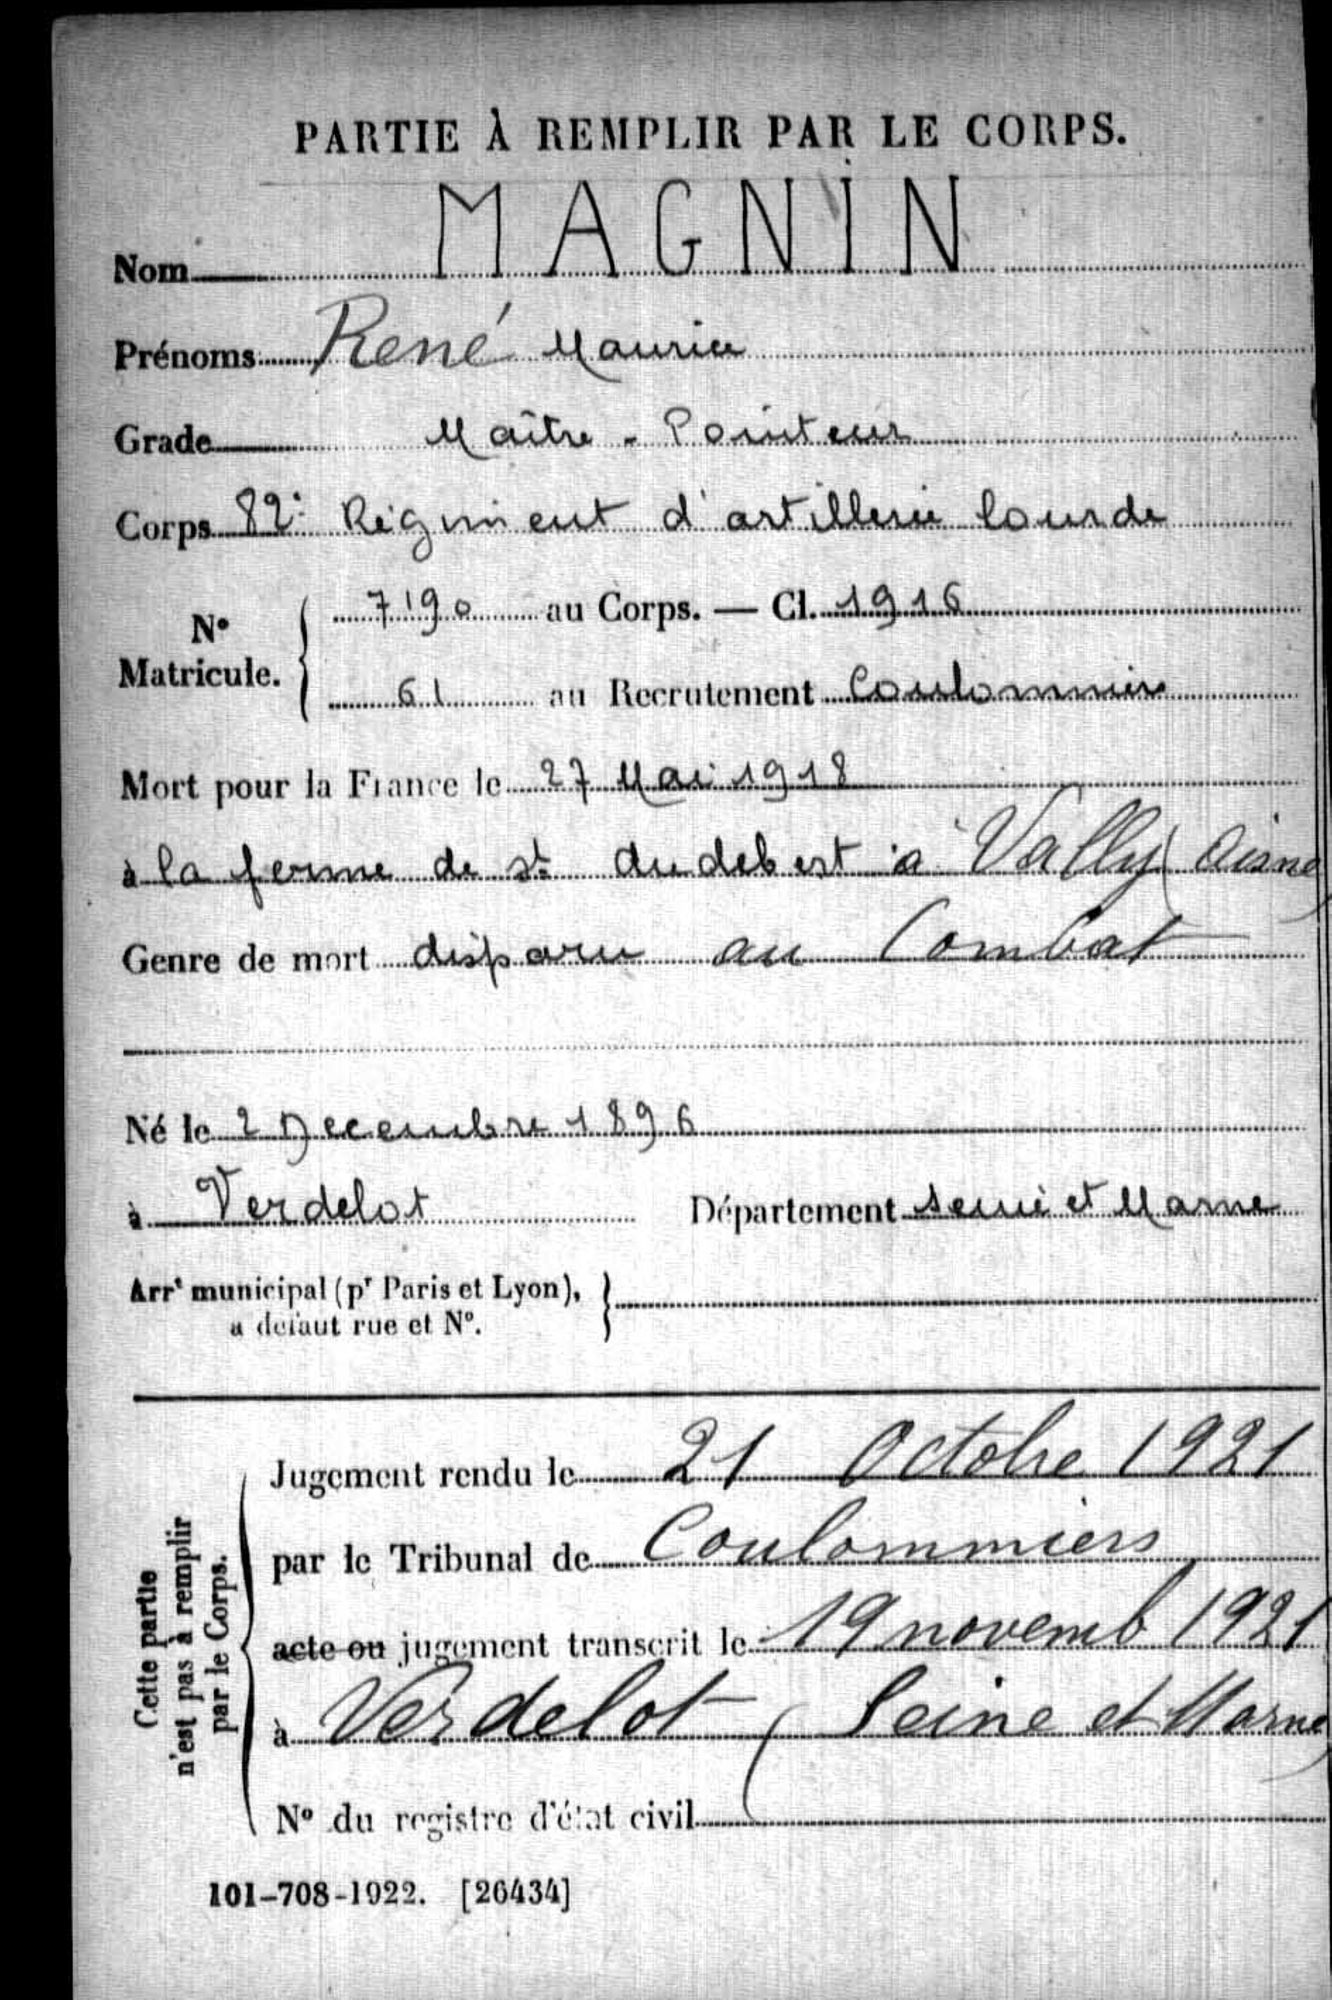 PARTIE À REMPLIR PAR LE CORPS.
Nom MAGNIN
Prénoms René Maurice
Grade Maître - Pointeur
Corps 82e Régiment d'artillerie lourde
N° Matricule. 7190 au Corps. — Cl. 1916
61 au Recrutement Coulommiers
Mort pour la France le 27 Mai 1918
à la ferme de St Audebert à Vailly (Aisne)
Genre de mort disparu au Combat
Né le 2 Decembre 1896
à Verdelot Département Seine et Marne
Arrt municipal (pr Paris et Lyon),
a defaut rue et N°.
Cette partie
n'est pas à remplir
par le Corps.
Jugement rendu le 21 Octobre 1921
par le Tribunal de Coulommiers
acte ou jugement transcrit le 19 novemb 1921
à Verdelot (Seine et Marne)
N° du registre d'état civil
101-708-1922. [26434]